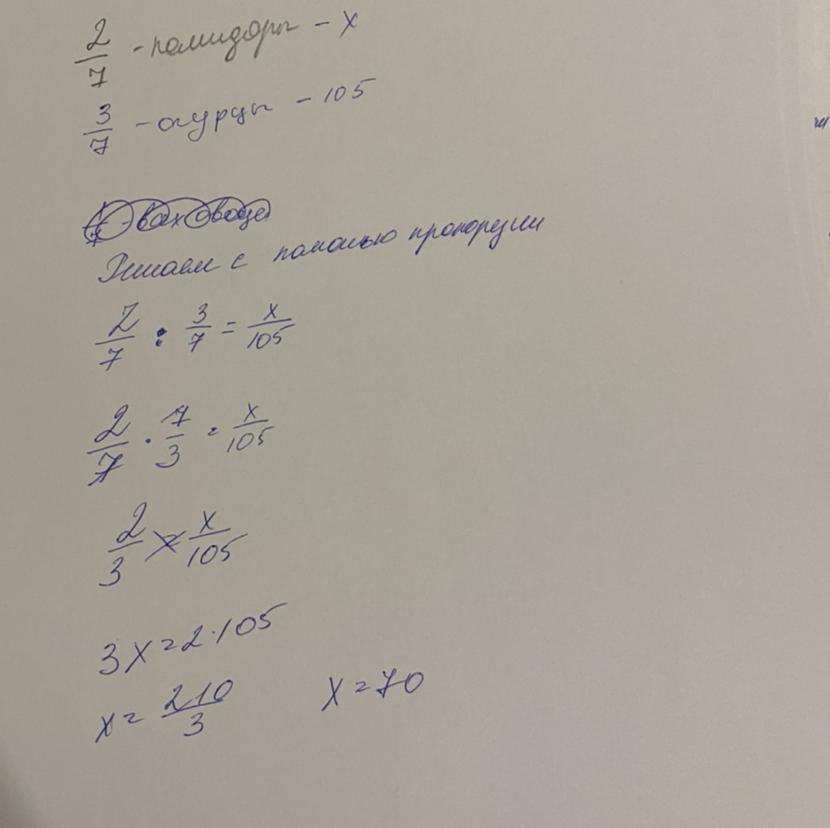 2/7 - помидоры - x
3/7 - огурцы - 105
Решаем с помощью пропорции
2/7 : 3/7 = x/105
2/7 · 7/3 = x/105
2/3 = x/105
3x = 2·105
x = 210/3 x = 70